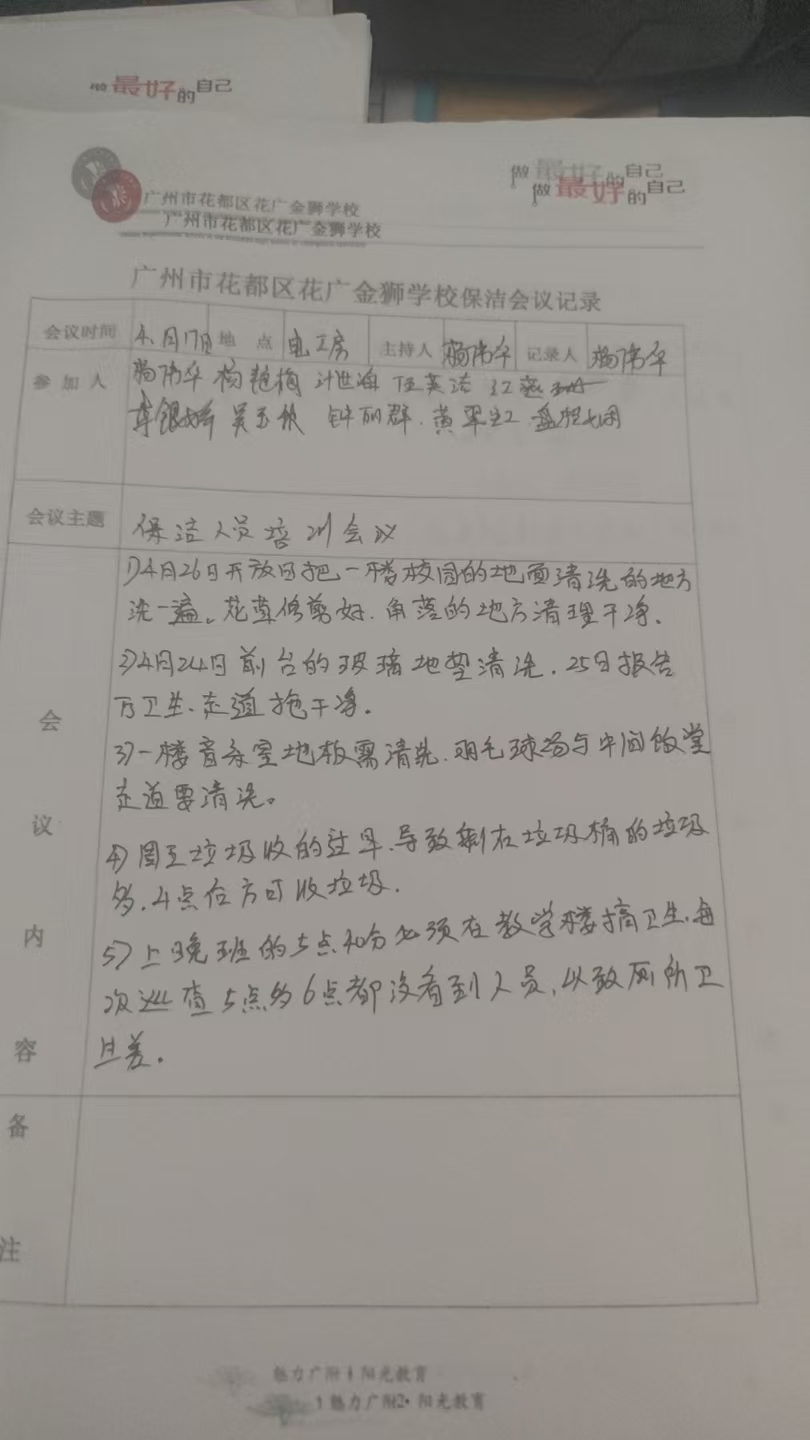 做最好的自己
广州市花都区花广金狮学校
做最好的自己
广州市花都区花广金狮学校
做最好的自己
广州市花都区花广金狮学校保洁会议记录
会议时间 4月17日 地点 电工房 主持人 杨伟华 记录人 杨伟华
参加人 杨伟华 杨艳梅 计世海 伍英洁
吴玉秋 钟丽群 黄翠红
会议主题 保洁人员培训会议
会议内容
1)4月26日开放日把一楼校园的地面清洗的地方
洗一遍。花草修剪好.角落的地方清理干净.
2)4月24日前台的玻璃地垫清洗.25日报告
厅卫生.走道拖干净.
3)一楼音乐室地板需清洗.羽毛球场与中间饭堂
走道要清洗。
4)周五垃圾收的过早.导致剩在垃圾桶的垃圾
多.4点后方可收垃圾.
5)上晚班的5点30分必须在教学楼搞卫生.每
次巡查5点多6点都没看到人员.以致厕所卫
生差.
备注
魅力广附1阳光教育
1魅力广附2·阳光教育